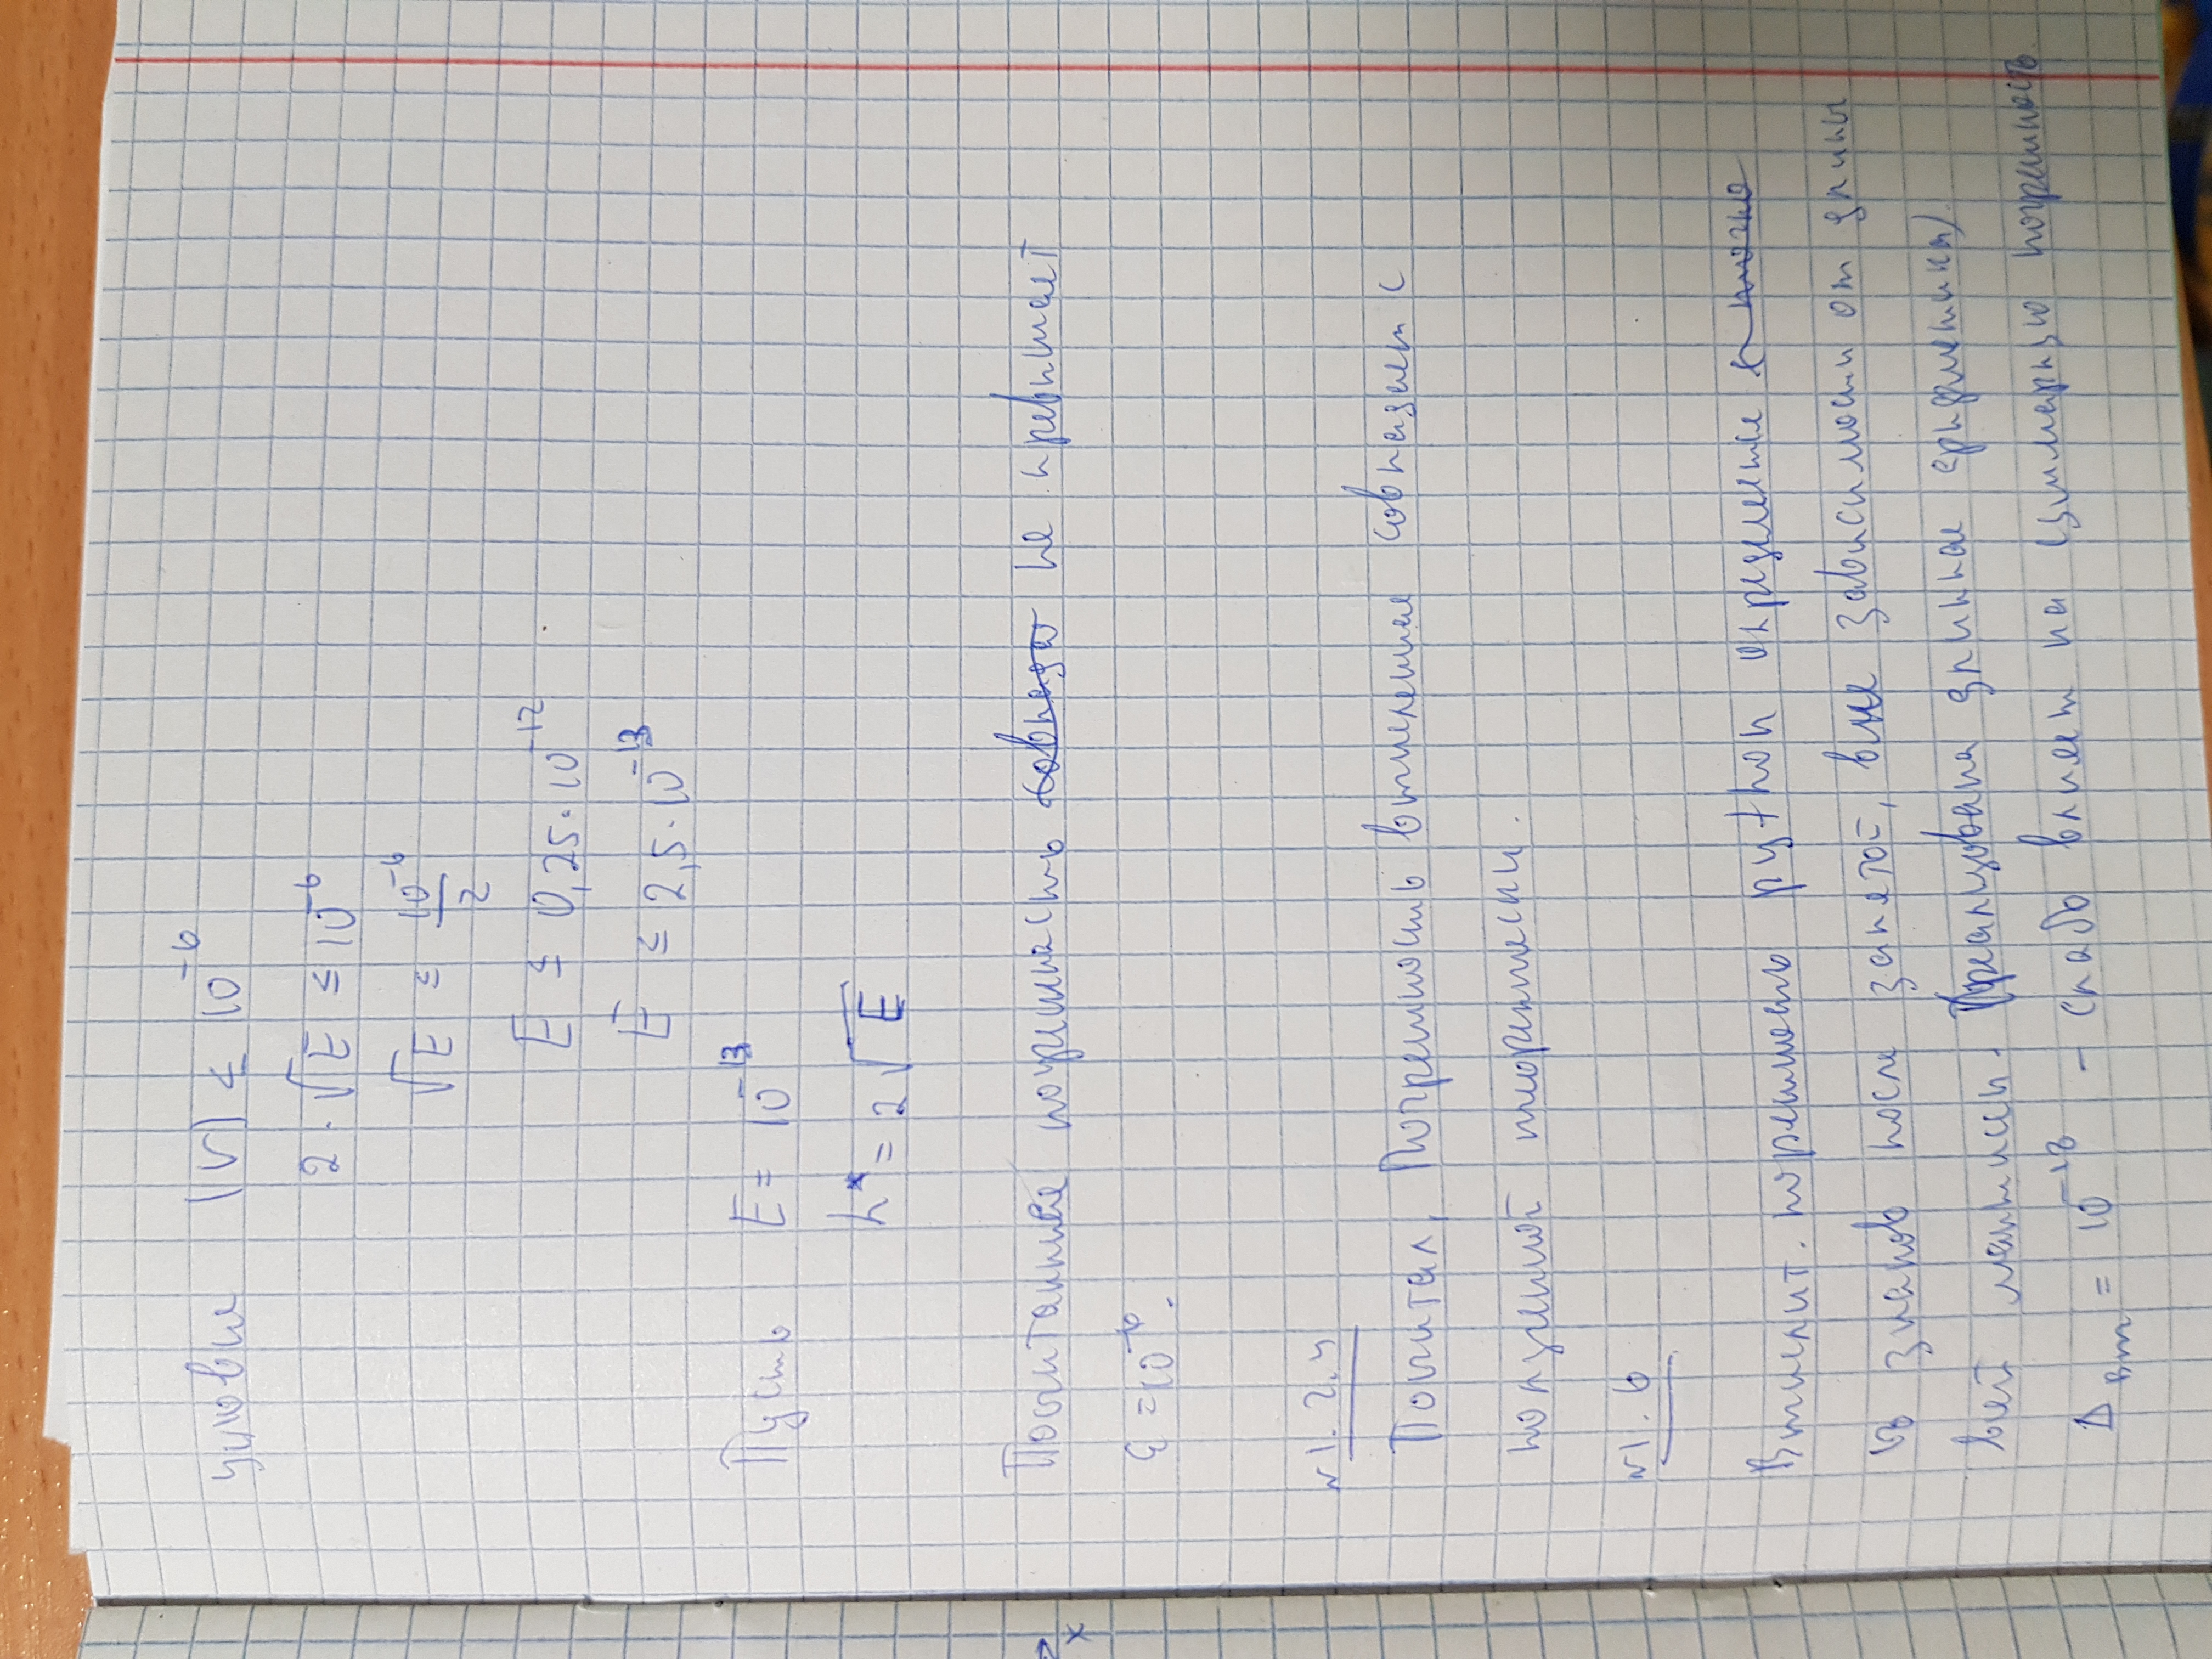 условие |r| ≤ 10^{-6}
2 · √E ≤ 10^{-6}
√E ≤ 10^{-6}/2
E ≤ 0,25 · 10^{-12}
E ≤ 2,5 · 10^{-13}
Пусть E = 10^{-13}
h* = 2√E
x
Посчитанная погрешность совпада не превышает
ε = 10^{-6}.
№1.2.4
Посчитал, Погрешность вычисления совпадает с
полученной теоретически.
№1.6
Вычислит. погрешность python определяется точно
знаков после запятой, вне зависимости от длины
всей мантиссы. (реализована длинная арифметика)
Δ выч = 10^{-18} - слабо влияет на суммарную погрешность